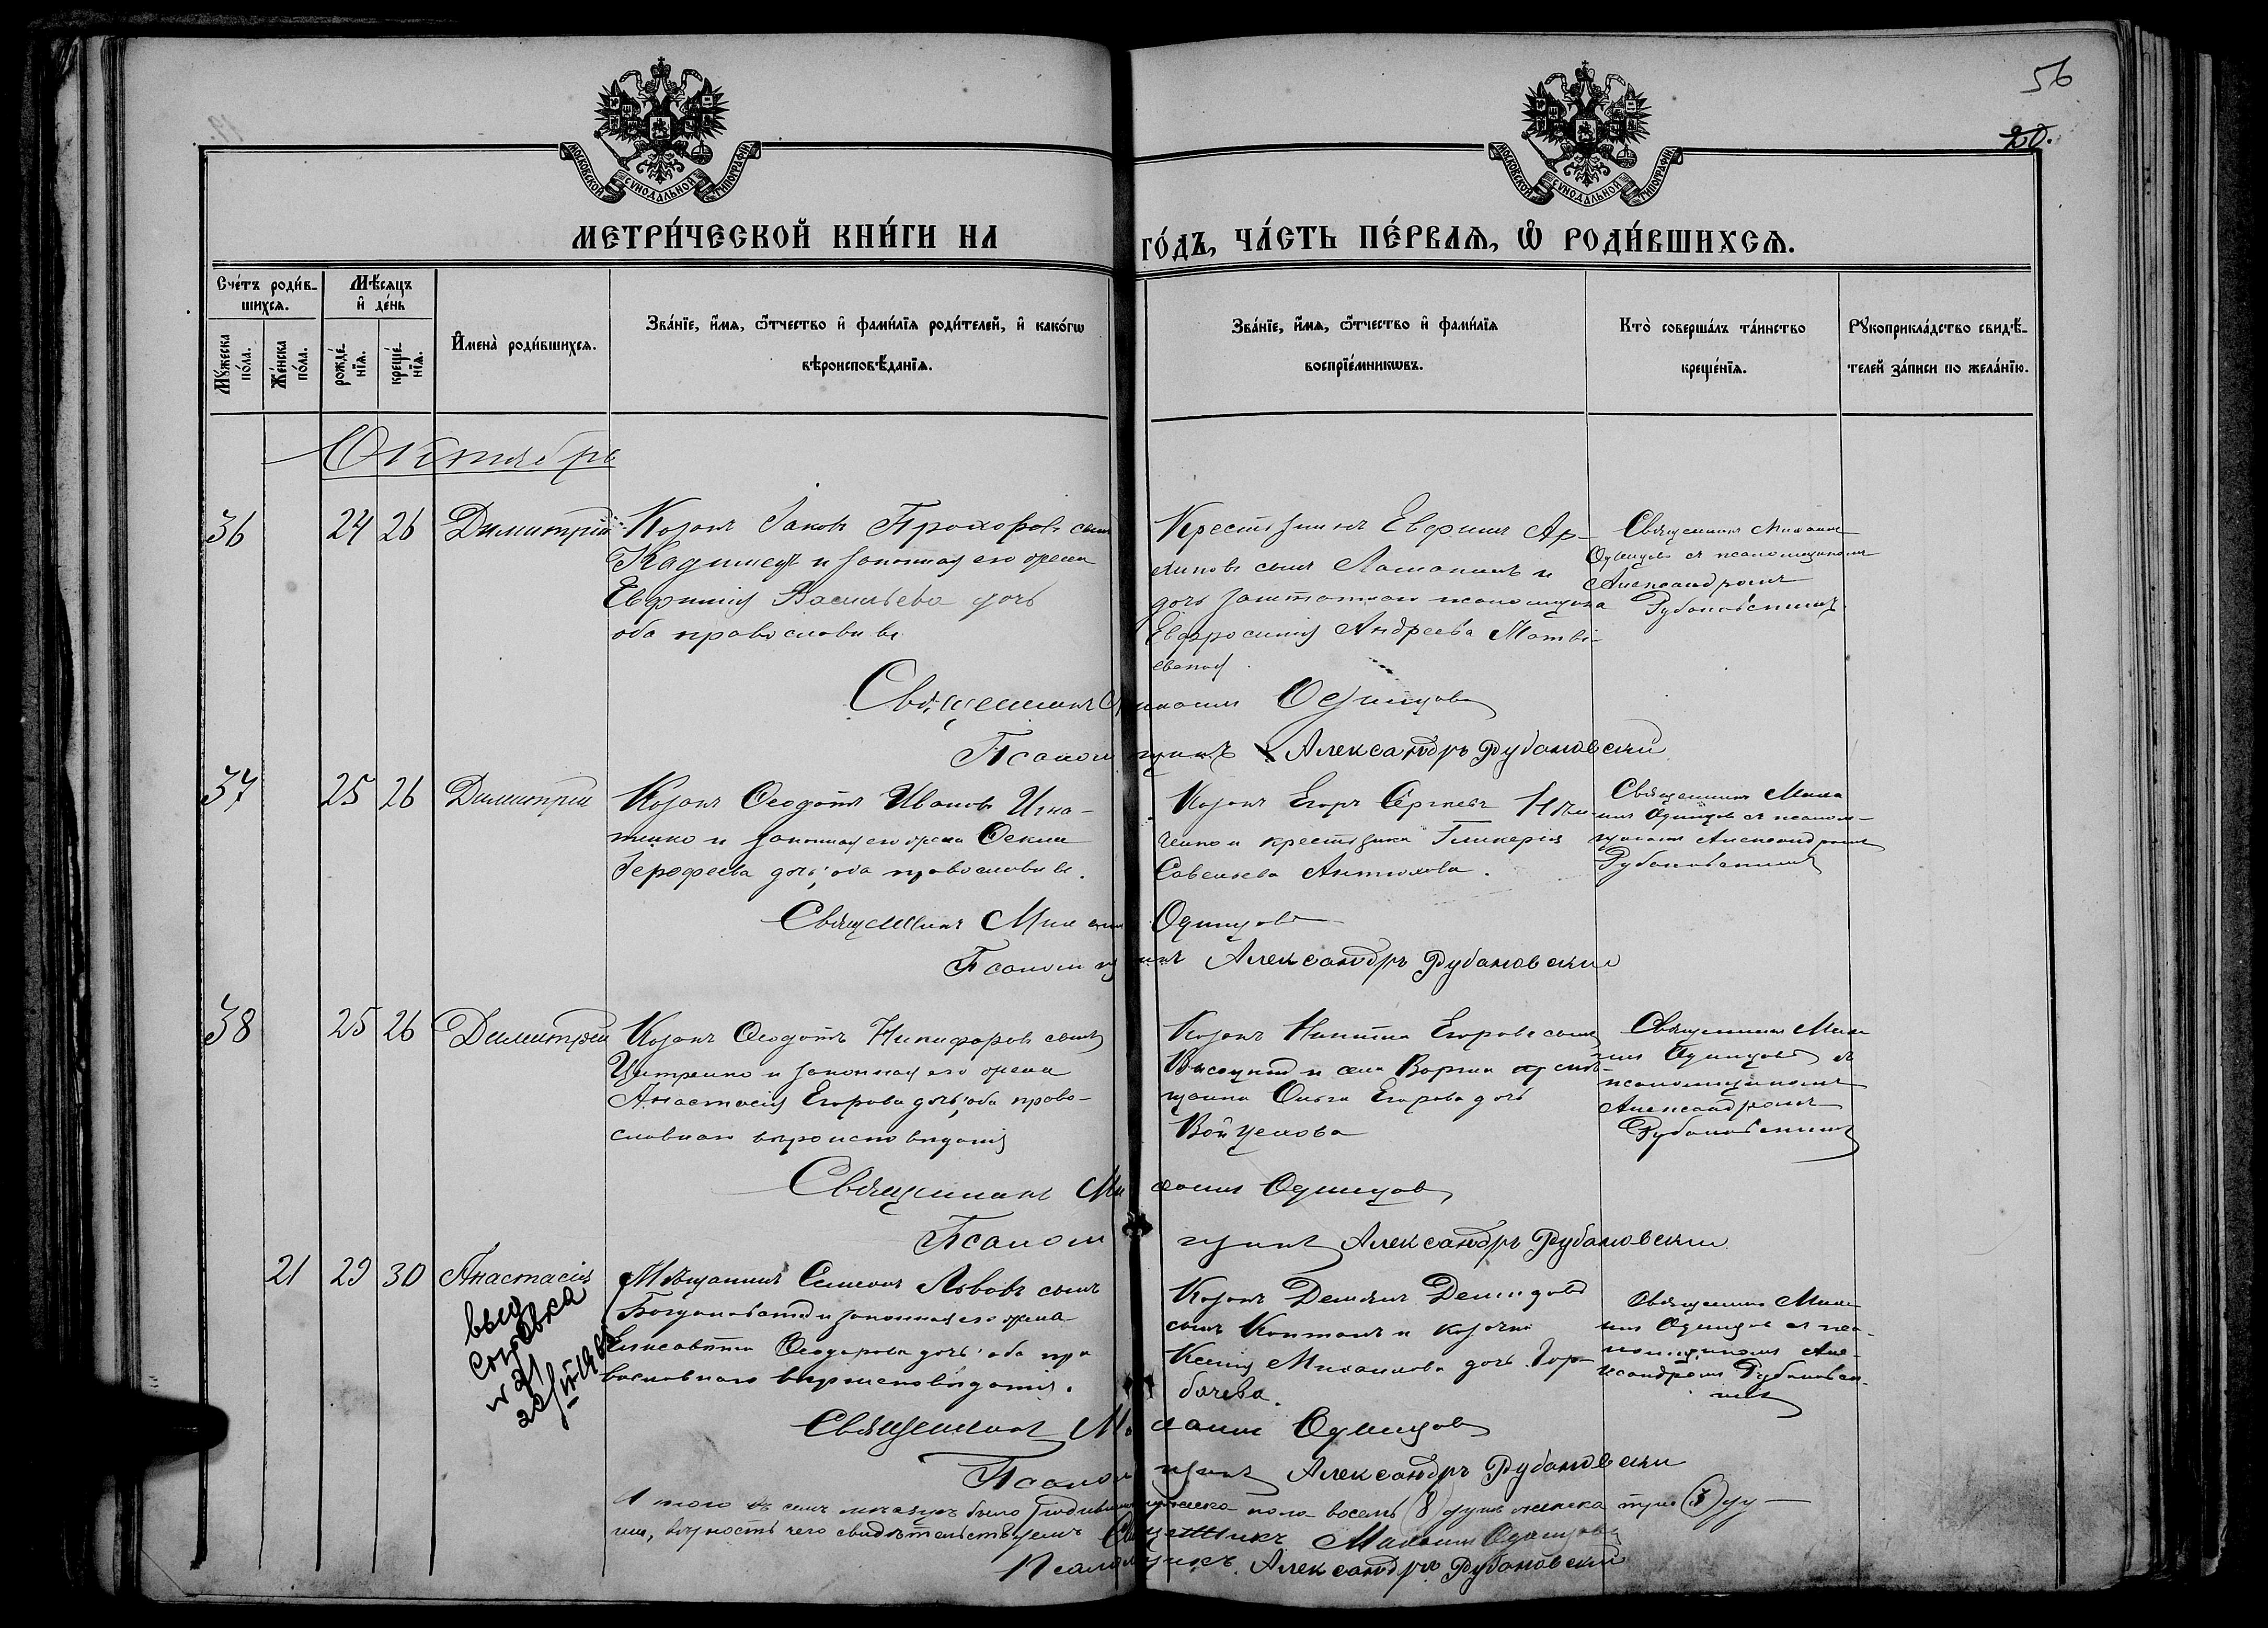 56
20.
МОСКОВСКОЙ СѴНОДАЛЬНОЙ ТИПОГРАФІИ.
МОСКОВСКОЙ СѴНОДАЛЬНОЙ ТИПОГРАФІИ.
МЕТРИ́ЧЕСКОЙ КНИ́ГИ НА
ГО́ДЪ, ЧА́СТЬ ПЕ́РВАѦ, Ѡ҆ РОДИ́ВШИХСѦ.
Сче́тъ роди́в-
шихсѧ.
Мѣ́сяцъ
и҆ де́нь
Мꙋ́жеска
по́ла.
Же́нска
по́ла.
рожде́-
нїѧ.
креще́-
нїѧ.
И҆мена̀ роди́вшихсѧ.
Зва́нїе, и҆́мѧ, ѻ҆́тчество и҆ фами́лїѧ роди́телей, и҆ како́гѡ
вѣроисповѣ́данїѧ.
Зва́нїе, и҆́мѧ, ѻ҆́тчество и҆ фами́лїѧ
воспрїе́мникѡвъ.
Кто̀ соверша́лъ та́инство
креще́нїѧ.
Рꙋкоприкла́дство свидѣ́-
телей за́писи по жела́нїю.
Октябрь
36 24 26 Димитрій Козакъ Іаковъ Прохоровъ сынъ
и законная его жена
Евфимія Васильева дочь
оба православные
Крестьянинъ Евфимъ Ар-
хиповъ сынъ и
дочь заштатнаго псаломщика
Евфросинія Андреева Матві-
евская.
Священникъ Михаилъ
Одинцовъ съ псаломщикомъ
Александромъ
Рубановскимъ
Священникъ Михаилъ Одинцовъ
Псаломщикъ Александръ Рубановскій
37 25 26 Димитрій Козакъ Ѳеодотъ Ивановъ Игна-
тенко и законная его жена Ѳекла
Іерофеева дочь; оба православные.
Козакъ Егоръ Сергіевъ
и крестьянка Гликерія
Савельева Антюхова.
Священникъ Миха-
илъ Одинцовъ съ псалом-
щикомъ Александромъ
Рубановскимъ
Священникъ Михаилъ Одинцовъ
Псаломщикъ Александръ Рубановскій
38 25 26 Димитрій Козакъ Ѳеодотъ Никифоровъ сынъ
и законная его жена
Анастасія Егорова дочь; оба право-
славнаго вѣроисповѣданія
Козакъ Никита Егоровъ сынъ
Высоцкій и села
Ольга Егорова дочь
Войцехова
Священникъ Миха-
илъ Одинцовъ съ
псаломщикомъ
Александромъ
Рубановскимъ
Священникъ Михаилъ Одинцовъ
Псаломщикъ Александръ Рубановскій
21 29 30 Анастасія Мѣщанинъ Львовъ сынъ
Богдановскій и законная его жена
Елисавета Ѳеодорова дочь; оба пра
вославнаго вѣроисповѣданія.
выд
справка
№ 21
Козакъ Демьянъ Демидовъ
сынъ и козачка
Ксенія Михаилова дочь Гор-
бачева.
Священникъ Миха-
илъ Одинцовъ съ пса-
ломщикомъ Але-
ксандромъ Рубановс-
кимъ
Священникъ Михаилъ Одинцовъ
Псаломщикъ Александръ Рубановскій
Итого въ семъ мѣсяцѣ было родившихся мужеска пола восемь (8) душъ женска три (3) ду-
ши, вѣрность чего свидѣтельствуемъ Священникъ Михаилъ Одинцовъ
Псаломщикъ Александръ Рубановскій